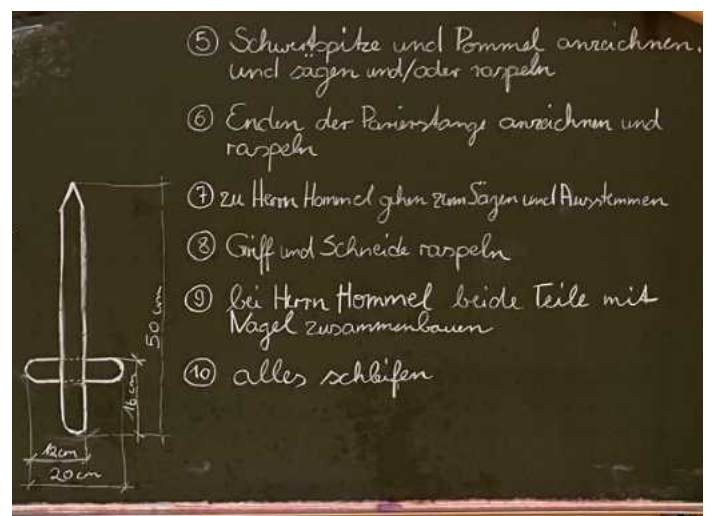 ⑤ Schwertspitze und Pommel anzeichnen.
und sägen und/oder raspeln
⑥ Enden der Parierstange anzeichnen und
raspeln
⑦ zu Herrn Hommel gehen zum Sägen und Ausstemmen
⑧ Griff und Schneide raspeln
⑨ bei Herrn Hommel beide Teile mit
Nagel zusammenbauen
⑩ alles schleifen
50 cm
16 cm
12cm
20 cm